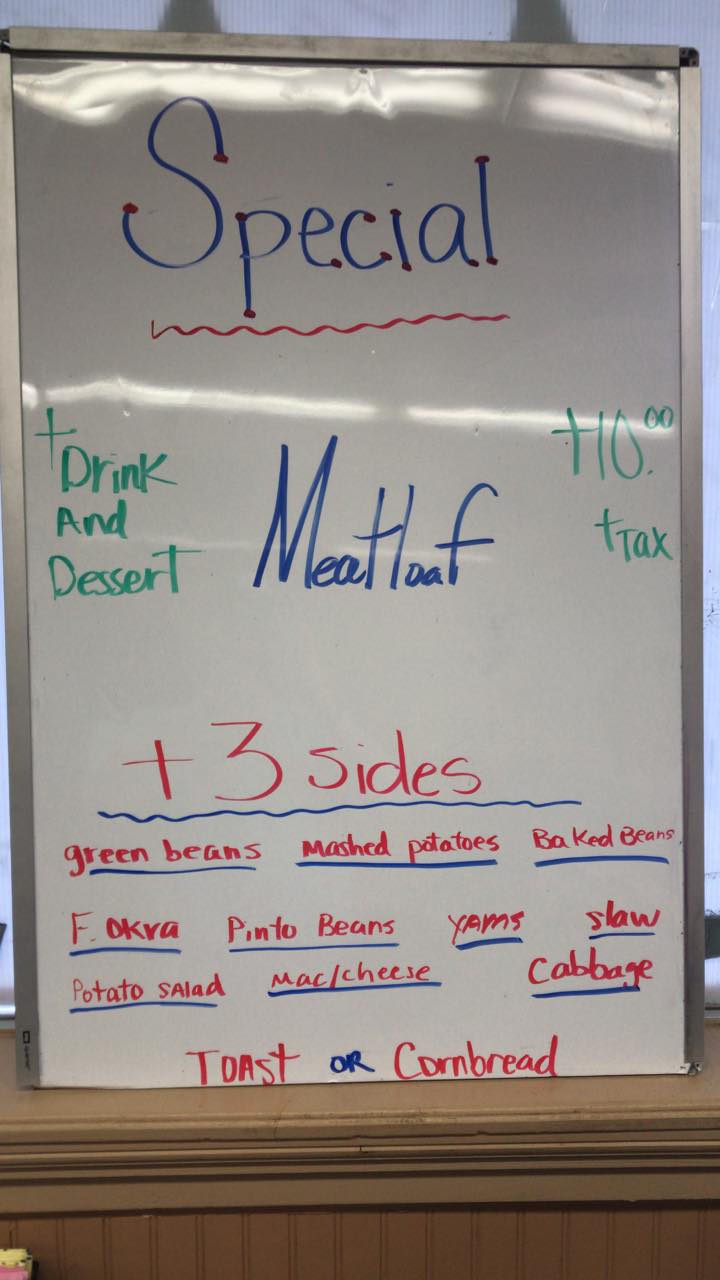 Special
+Drink
And
Dessert
Meatloaf
+10.00
+Tax
+3 sides
green beans Mashed potatoes Baked Beans
F. OKra Pinto Beans YAMS slaw
Potato SAlad Mac/cheese Cabbage
TOAST OR Cornbread